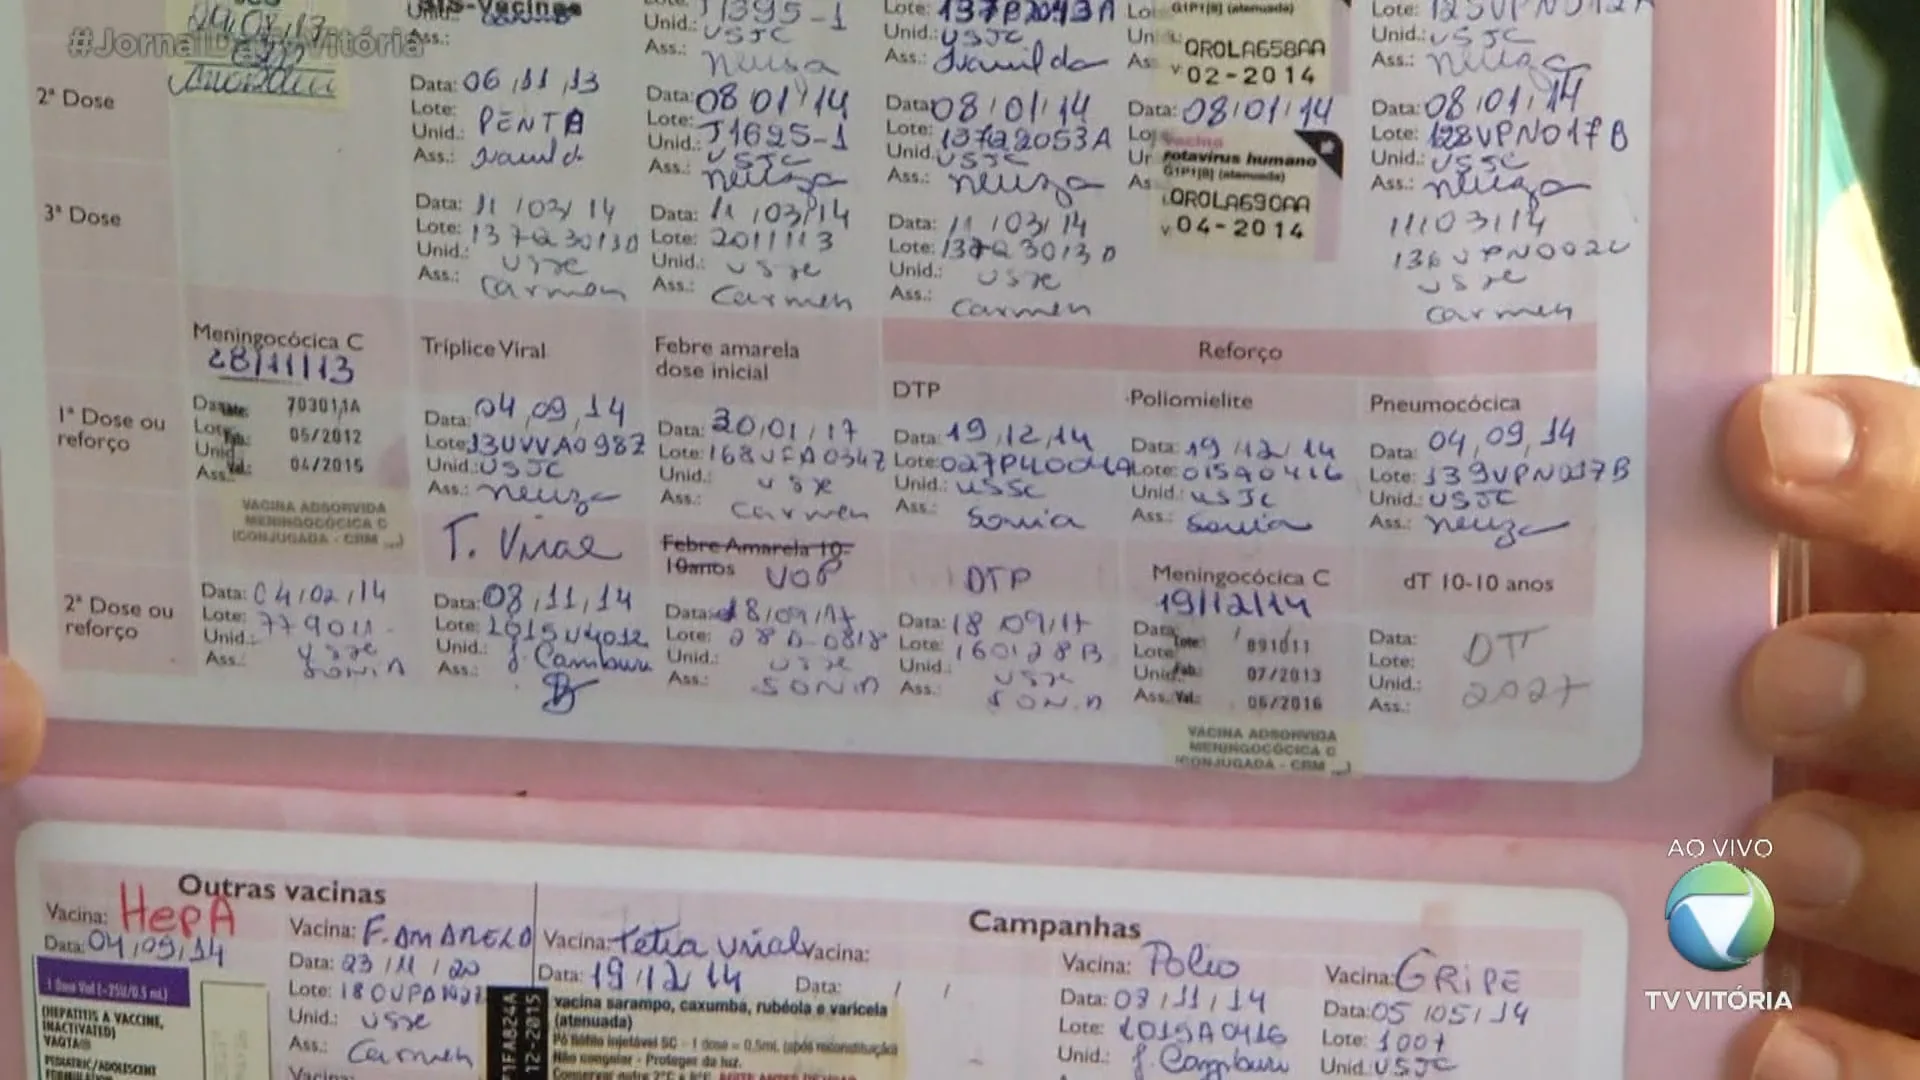 #JornalDaTVVitória
29/08/13
Unid.:
Ass.:
J1395-1
Unid.: USJC
Ass.: Neuza
Lote: 137P2043A
Unid.: USJC
Ass.: Ivanilda
G1P1[8] (atenuada)
QROLA658AA
V 02-2014
Unid.: USJC
Ass.: Neuza
2ª Dose
Data: 06/11/13
Lote:
Unid.: PENTA
Ass.: Ivanild
Data: 08/01/14
Lote: J1695-1
Unid.: USJC
Ass.: Neuza
Data: 08/01/14
Lote: 137Q2053A
Unid.: USSC
Ass.: Neuza
Data: 08/01/14
Vacina
rotavírus humano
G1P1[8] (atenuada)
QROLA690AA
V 04-2014
Data: 08/01/14
Lote: 128VPN017B
Unid.: USSC
Ass.: Neuza
3ª Dose
Data: 11/03/14
Lote: 137Q3013D
Unid.: USJC
Ass.: Carmen
Data: 11/03/14
Lote: 2011113
Unid.: USJC
Ass.: Carmen
Data: 11/03/14
Lote: 137Q3013D
Unid.: USJC
Ass.: Carmen
11/03/14
136VPN002C
USJC
Carmen
Meningocócica C
28/11/13
Tríplice Viral
Febre amarela
dose inicial
Reforço
DTP
Poliomielite
Pneumocócica
1ª Dose ou
reforço
703011A
05/2012
04/2015
VACINA ADSORVIDA
MENINGOCÓCICA C
(CONJUGADA - CRM
Data: 04/09/14
Lote: 13UVVA098Z
Unid.: USJC
Ass.: Neuza
Data: 20/01/17
Lote: 168VFA034Z
Unid.: USJC
Ass.: Carmen
Data: 19/12/14
Lote: 027P4004A
Unid.: USSC
Ass.: Sonia
Data: 19/12/14
Lote: 015A0416
Unid.: USJC
Ass.: Sonia
Data: 04/09/14
Lote: 139VPN037B
Unid.: USJC
Ass.: Neuza
T. Viral
Febre Amarela 10-
10anos VOP
DTP
Meningocócica C
19/12/14
dT 10-10 anos
2ª Dose ou
reforço
Data: 04/02/14
Lote: 779011
Unid.: USJC
Ass.: SONIA
Data: 08/11/14
Lote: 2015U4012
Unid.: J. Camburi
Ass.:
Data: 18/09/17
Lote: 28D-0818
Unid.: USJC
Ass.: SONIA
Data: 18/09/17
Lote: 160128B
Unid.: USJC
Ass.: SONIA
Data
Lote: 891011
Fab.: 07/2013
Ass. Val.: 06/2016
VACINA ADSORVIDA
MENINGOCÓCICA C
(CONJUGADA - CRM
Data: DTT
Lote:
Unid.: 2027
Ass.:
Outras vacinas
Campanhas
Vacina: HepA
Data: 04/09/14
1 Dose Vial (~25U/0.5 mL)
(HEPATITIS A VACCINE,
INACTIVATED)
VAQTA®
PEDIATRIC/ADOLESCENT
FORMULATION
Vacina: F. AMARELA
Data: 23/11/20
Lote: 180VPA
Unid.: USJC
Ass.: Carmen
Vacina:
Vacina: Tetra Viral
Data: 19/12/14
Vacina:
Data: / /
vacina sarampo, caxumba, rubéola e varicela
(atenuada)
Pó liófilo injetável SC - 1 dose = 0.5mL (após reconstituição)
Não congelar - Proteger da luz.
12-2015
Vacina: Polio
Data: 08/11/14
Lote: 2015A0416
Unid.: J. Camburi
Vacina: GRIPE
Data: 05/05/14
Lote: 1007
Unid.: USJC
AO VIVO
TV VITÓRIA